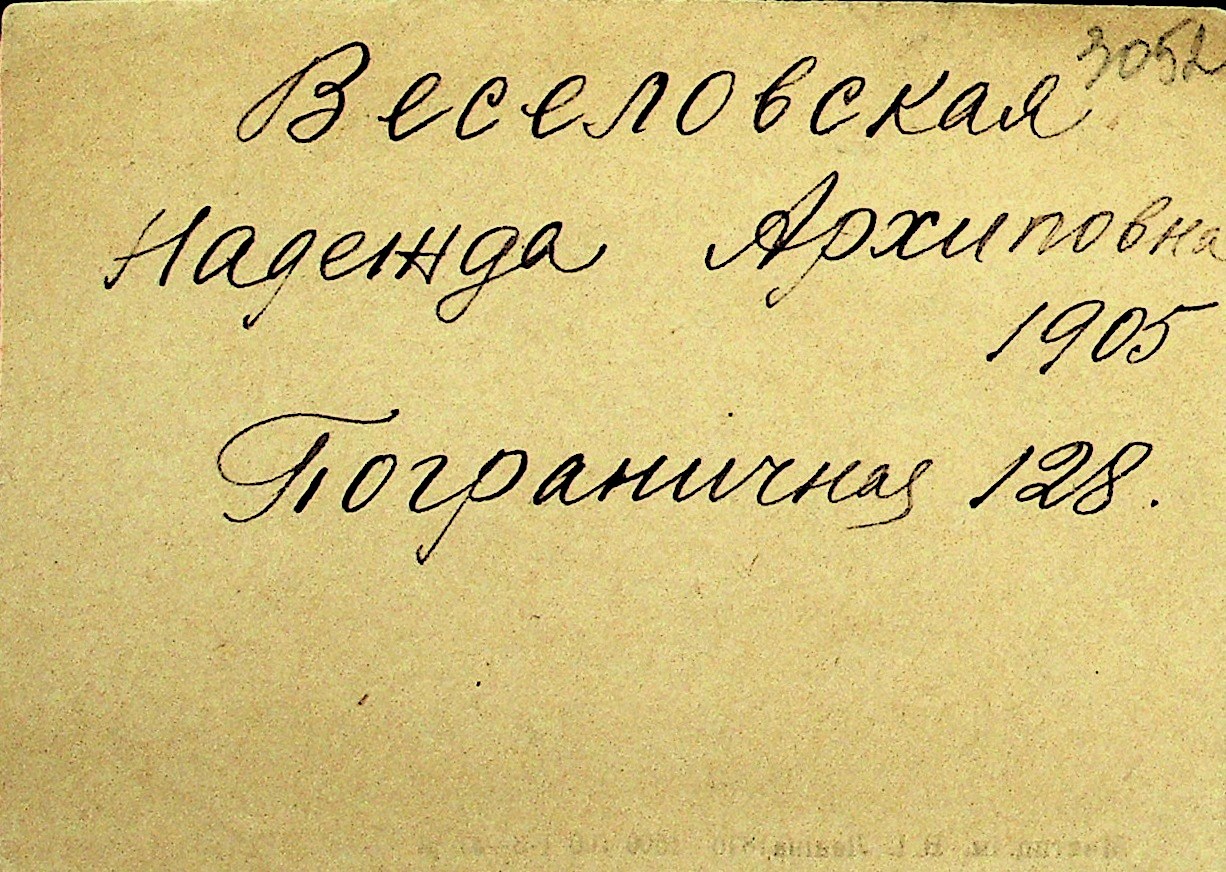 3052
Веселовская
Надежда Архиповна
1905
Пограничная 128.